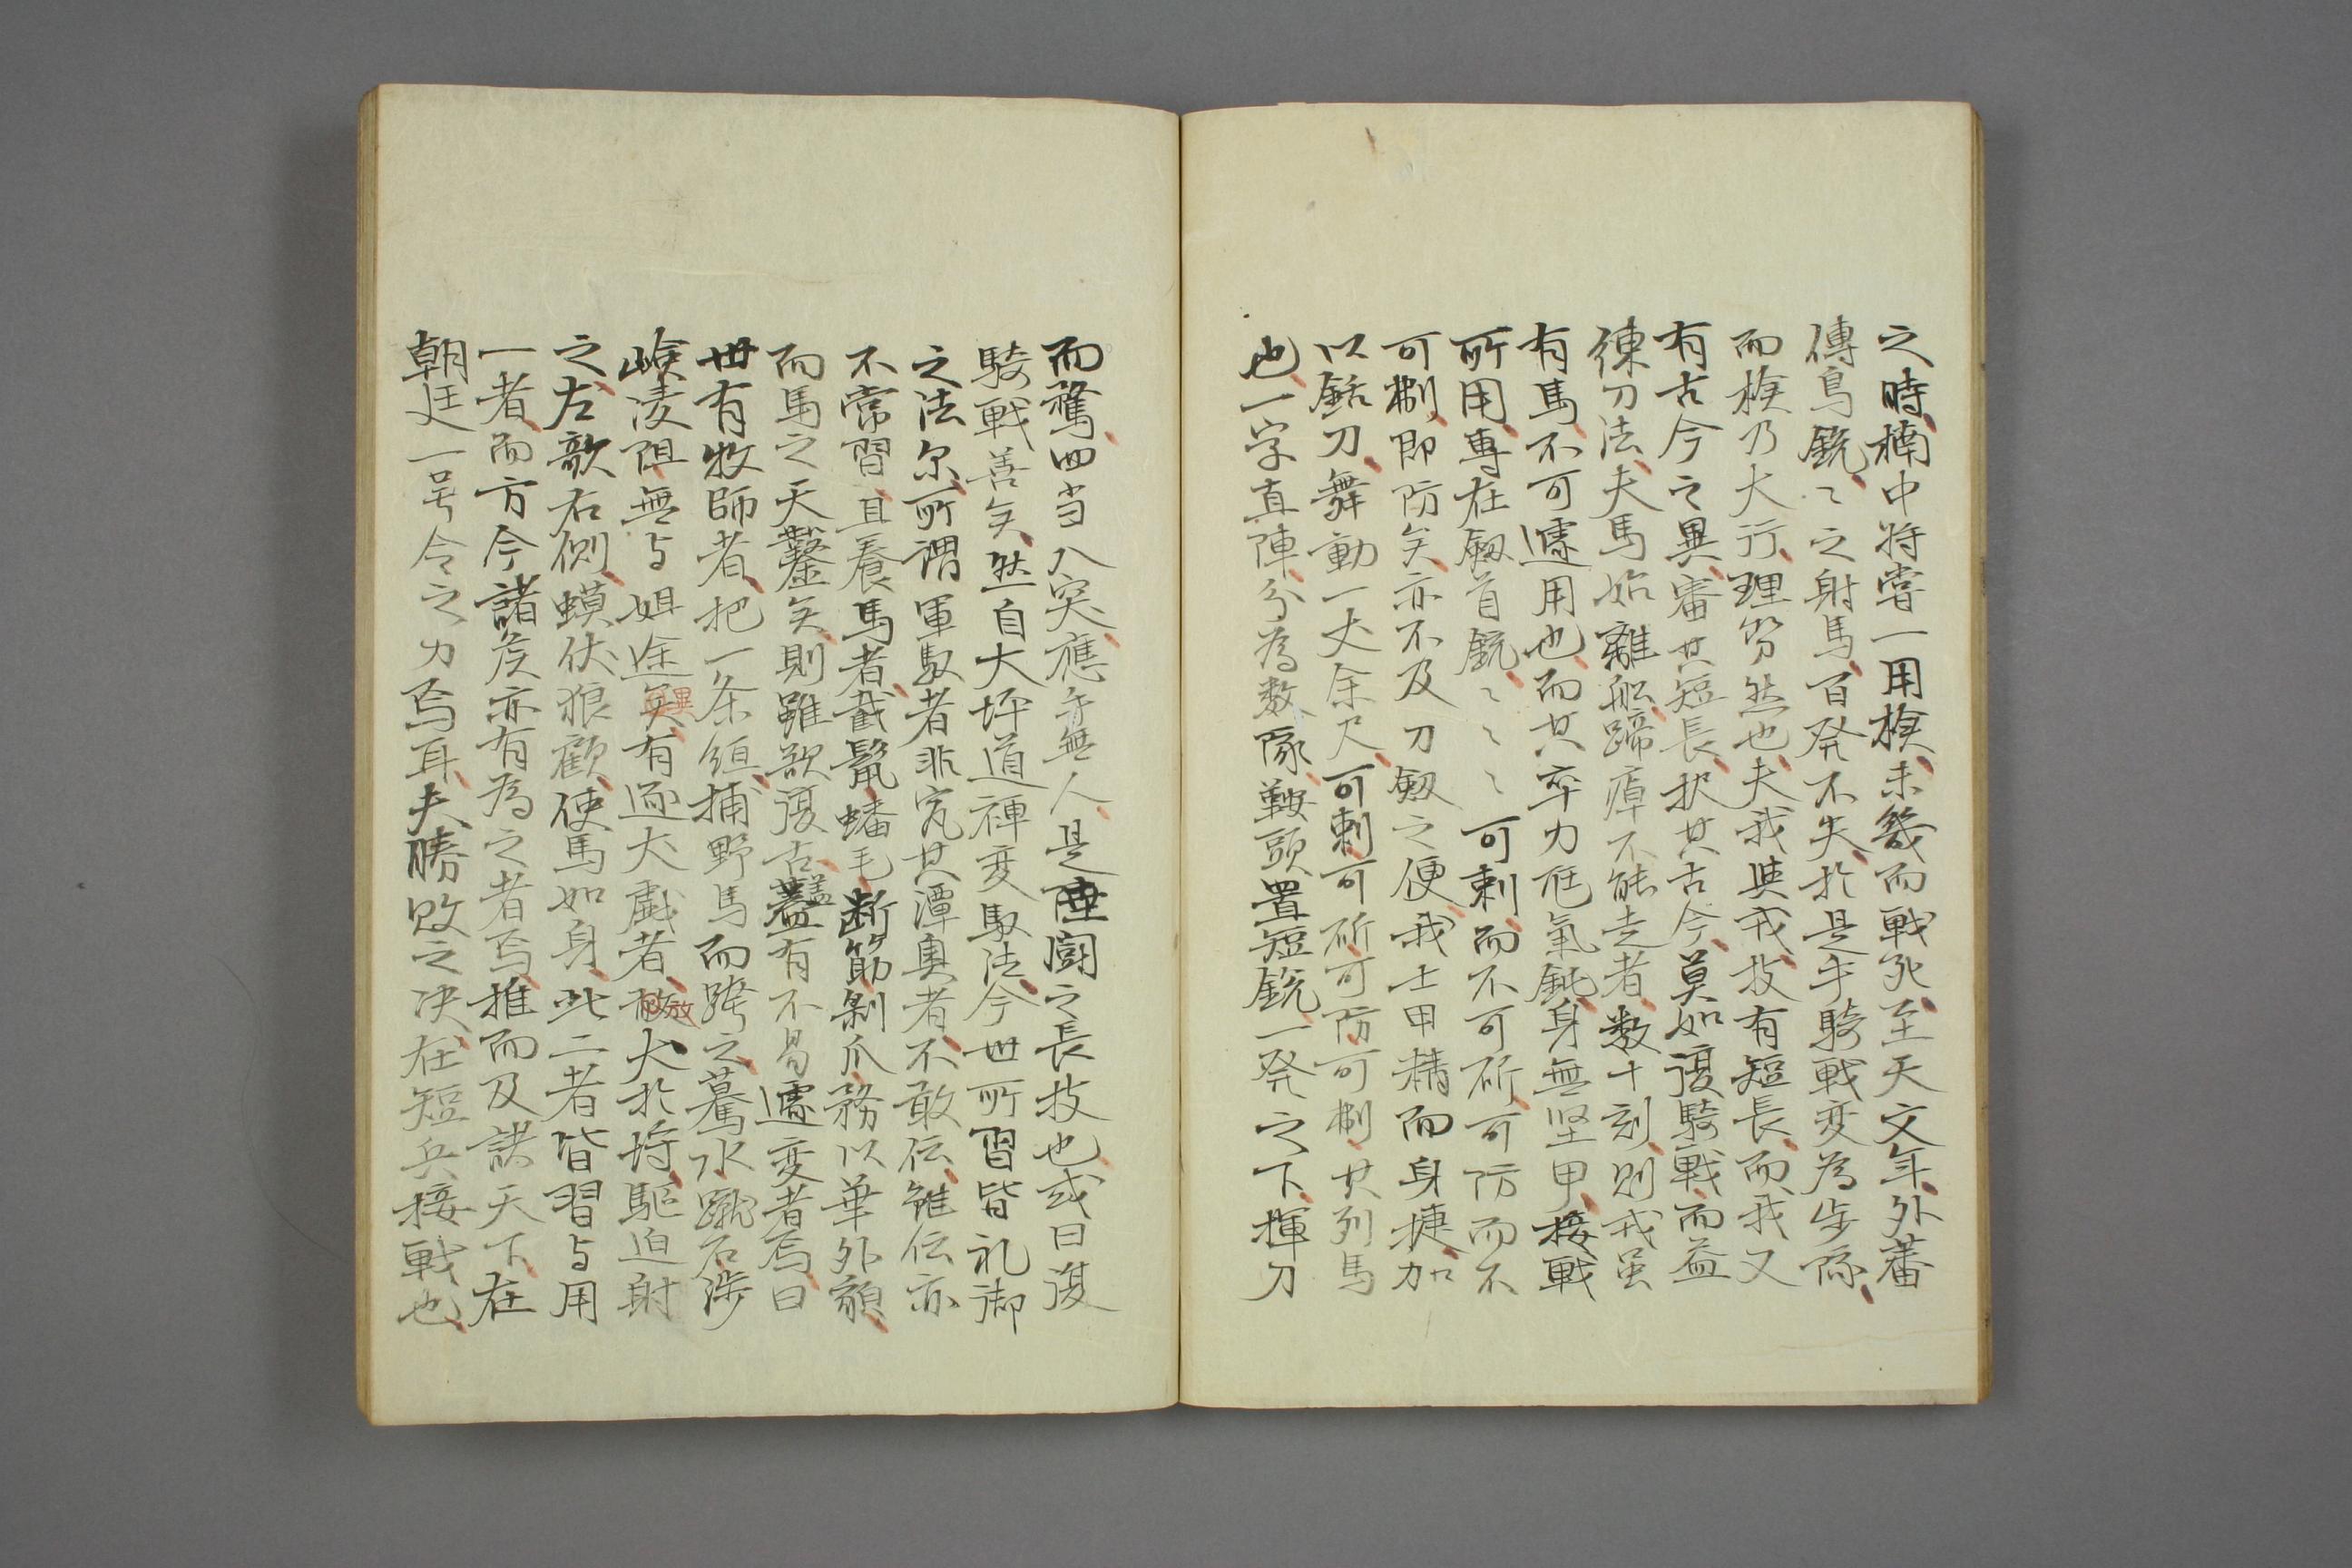 之時楠中将嘗一用槍未幾而戦死至天文年外蕃
傳鳥銃〻之射馬百発不失於是乎騎戦変為歩隊
而槍乃大行理勢然也夫我與戎技有短長而我又
有古今之異審其短長択其古今莫如復騎戦而益
練刀法夫馬始離船蹄痺不能走者数十刻則戎虽
有馬不可遽用也而其卒力尫氣鈍身無堅甲接戦
所用専在劔首銃〻〻〻可刺而不可斫可防而不
可捌即防矣亦不及刀劔之便我士甲精而身捷加
以銛刀舞動一丈余尺可刺可斫可防可捌其列馬
也一字直陣分為数隊鞍頭置短銃一発之下揮刀
而騖四当八突應手無人是陸闘之長技也或曰復
騎戦善矣然自大坪道禅変馭法今世所習皆礼御
之法尓所謂軍馭者非究其潭奥者不敢伝雖伝亦
不常習且養馬者截鬣蟠毛断筋剝爪務以華外貌
而馬之天鑿矣則雖欲復古蓋蓋有不易遽変者焉曰
世有牧師者把一条絙捕野馬而跨之驀水蹴石渉
嶮凌阻無与姐途異矣有逐犬戯者放放犬於埒駆迫射
之左欹右側蟆伏狼顧使馬如身此二者皆習与用
一者而方今諸侯亦有為之者焉推而及諸天下在
朝廷一号令之力焉耳夫勝敗之决在短兵接戦也